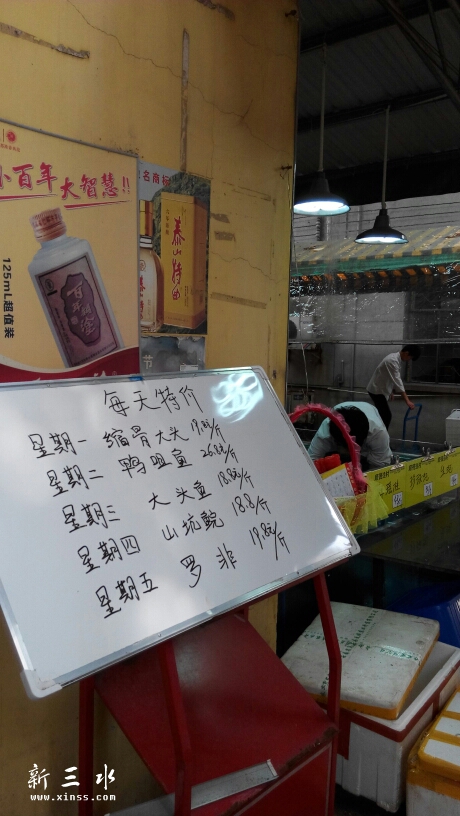 小百年大智慧!!
125mL超值装
百年
泰山特曲
每天特价
星期一 缩骨大头 19.8元/斤
星期二 鸭咀鱼 26.8元/斤
星期三 大头鱼 18.8元/斤
星期四 山坑鲩 18.8/斤
星期五 罗非 17.8元/斤
新三水
www.xinss.com